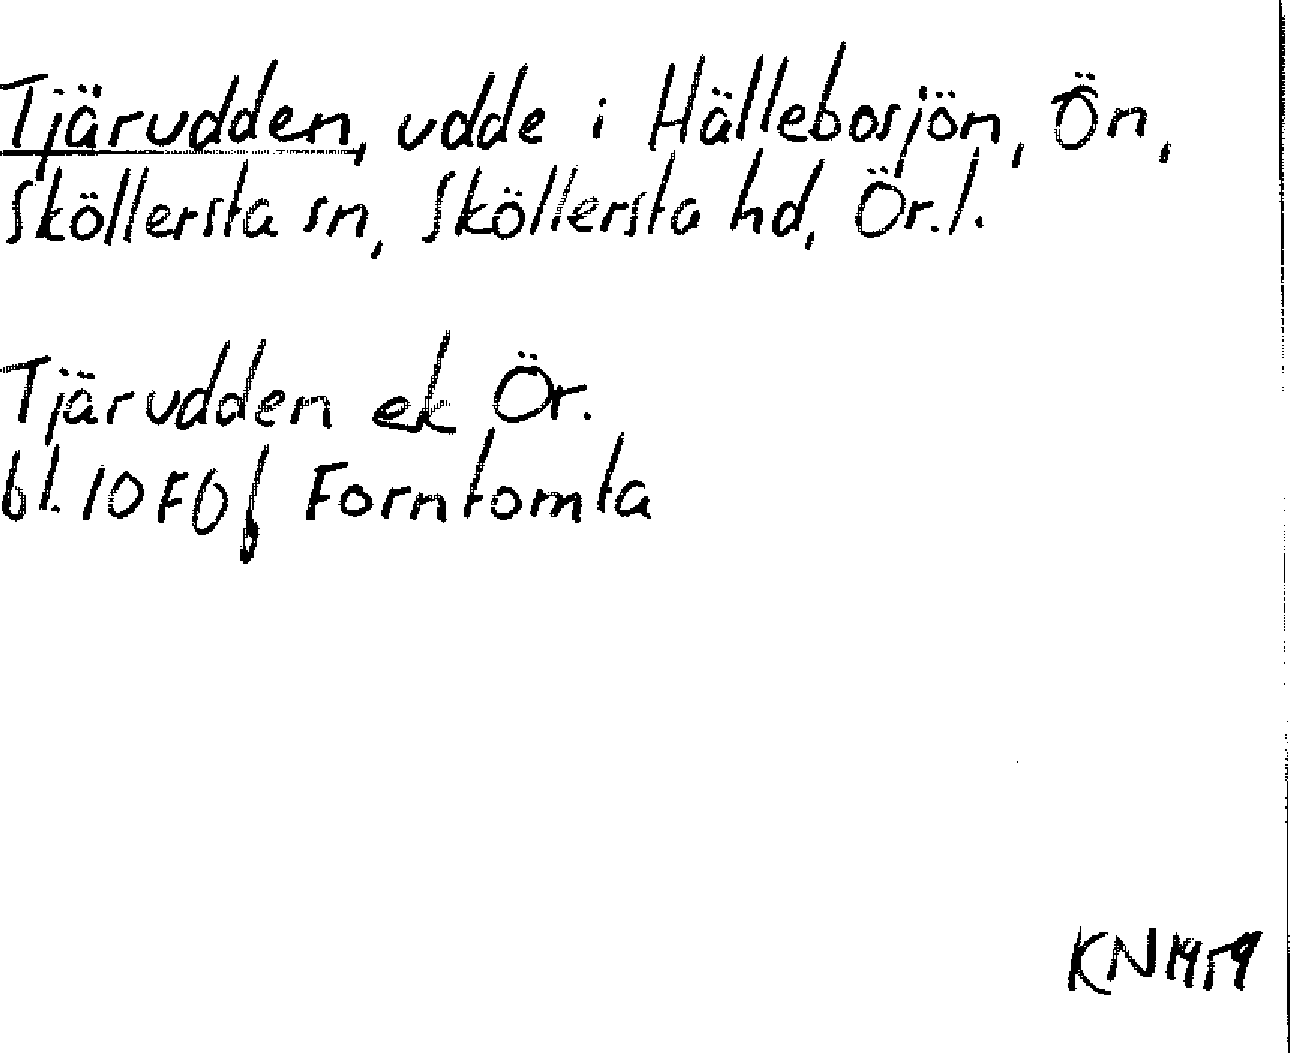 Tjärudden, udde i Hällebosjön, Ön,
Sköllersta sn, Sköllersta hd, Ör.l.
Tjärudden ek Ör.
bl. 10F0f Forntomta
KN 1959